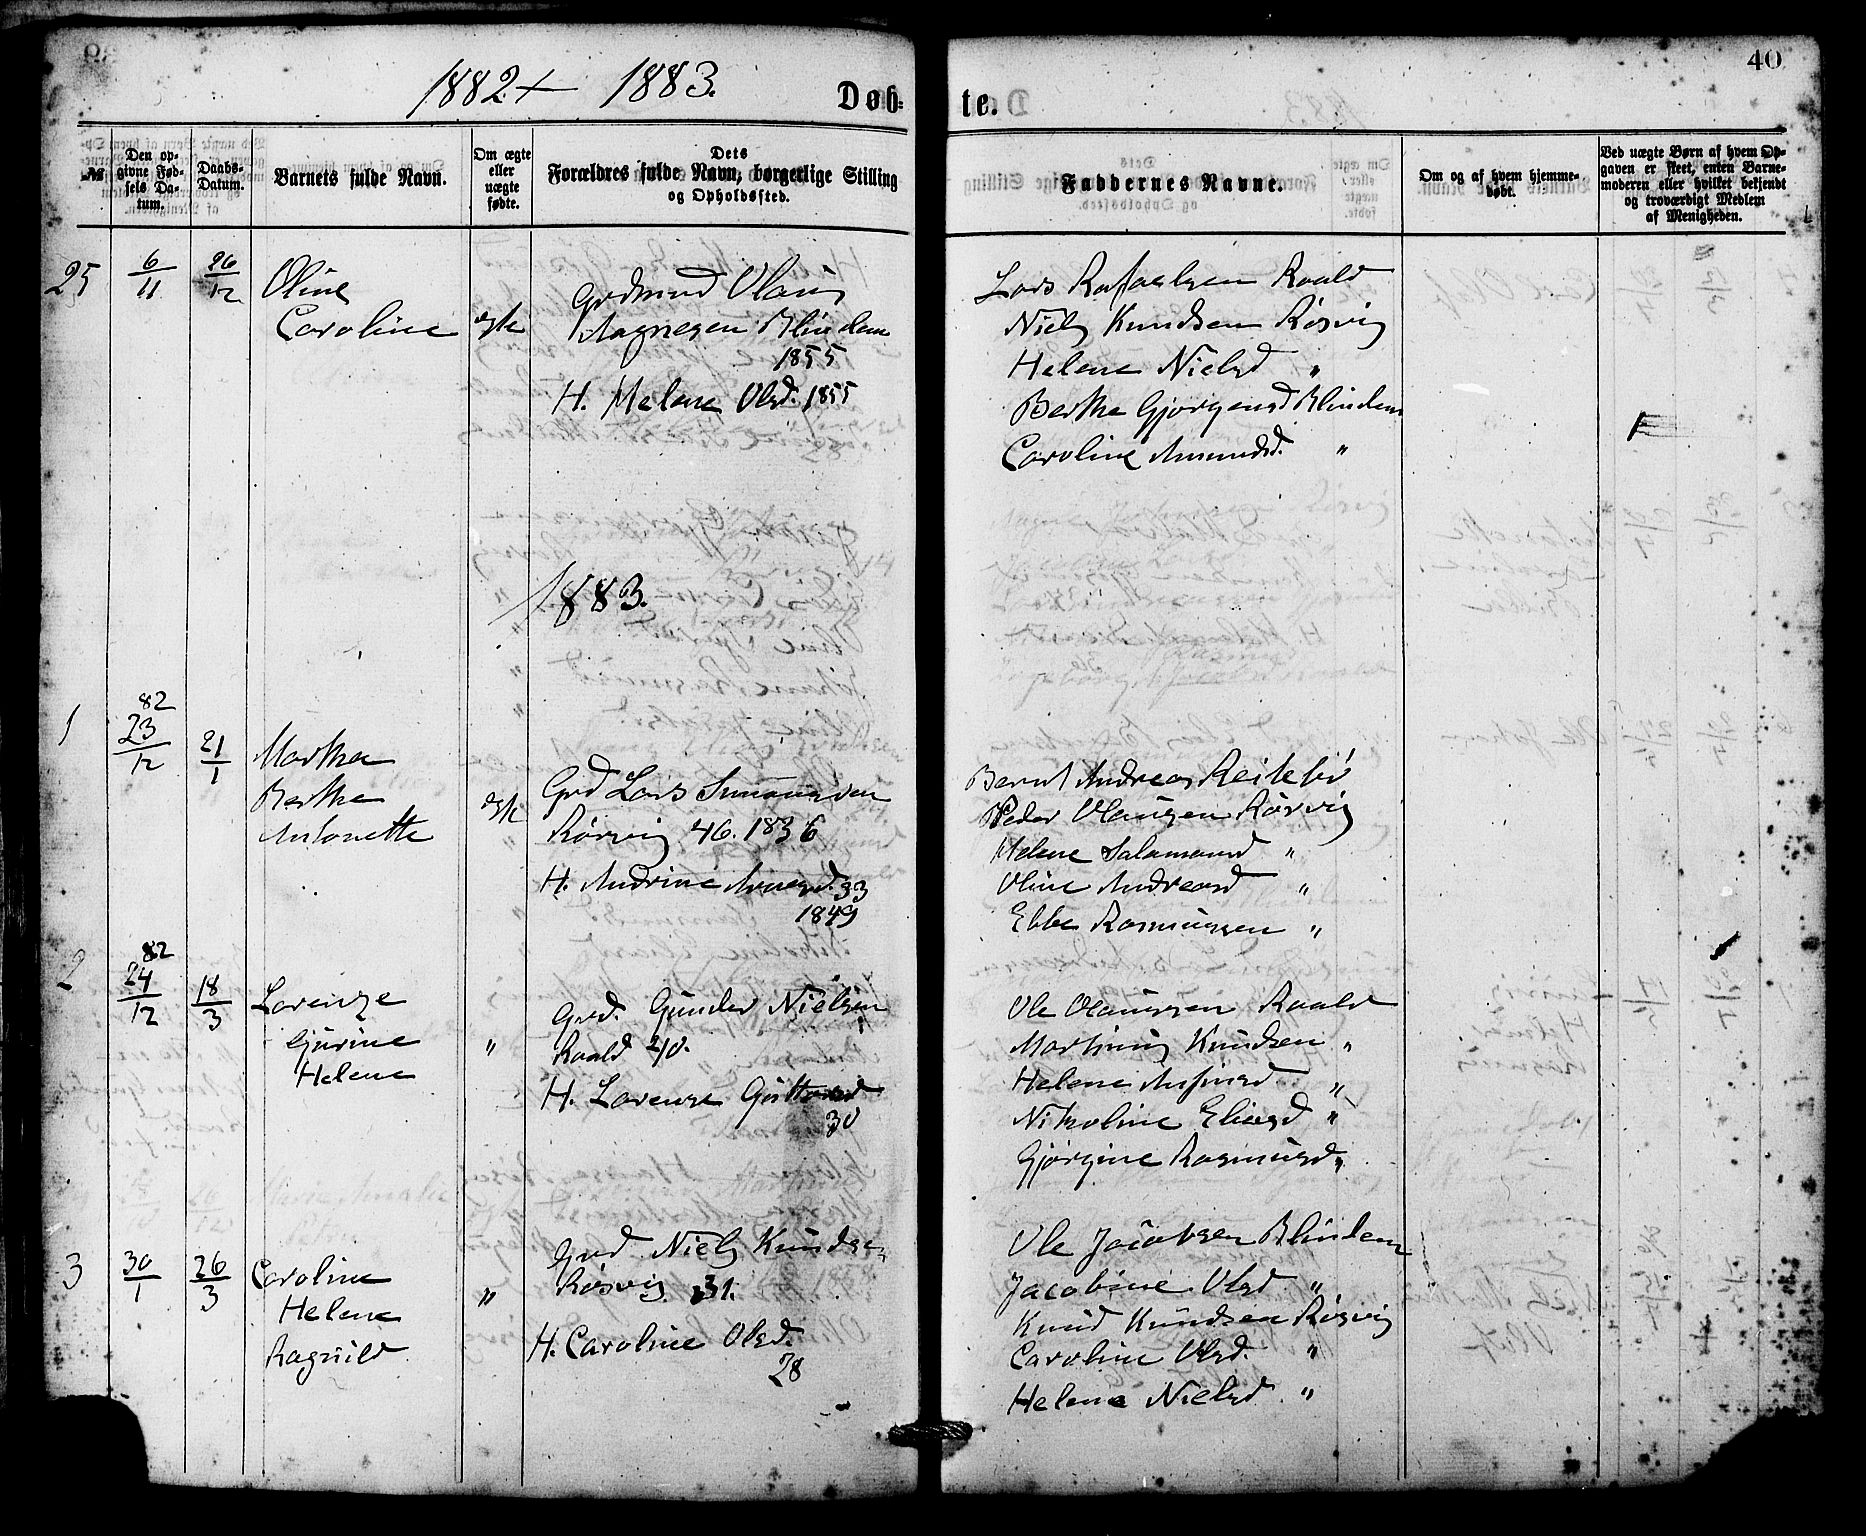 1882 + 1883.
Døb-
te.
40
№
Den op-
givne Fød-
sels Da-
tum.
Daabs-
Datum.
Barnets fulde Navn.
Om ægte
eller
uægte
fødte.
Dets
Forældres fulde Navn, borgerlige Stilling
og Opholdssted.
Faddernes Navne.
Om og af hvem hjemme-
døbt.
Ved uægte Børn af hvem Op-
gaven er skeet, enten Barne-
moderen eller hvilket bekjendt
og troværdigt Medlem
af Menigheden.
25
6/11
26/12
Oline
Caroline
Olaus
Blindem
1855
H. Melene Olsd. 1855
Lars Rafaelsen Roald
Niels Knudsen Røsvig
Helene Nielsd "
Berthe Gjørgensd Blindem
Caroline Amundsd. "
1883.
1
82
23/12
21/1
Marthea
Berthe
Antonette
Grd Lars
Rørvig 46. 1836
H. Andrine 33
1849
Bernt Andreas
Peder Olausen Rørvig
Helene Salamonsd "
Oline Andreasd "
Ebbe Rasmussen "
2
82
24/12
18/3
Lorenze
Gjurine
Helene
"
Grd. Gunder Nielsen
Roald 40.
H. Lorenze
30
Ole Olaussen Roald
Martinus Knudsen "
Helene Anfinsd "
Nikoline Eliasd "
Gjørgine Rasmusd "
3
30/1
26/3
Caroline
Helene
Ragnild
"
Grd Niels Knudsen
Røsvig. 31.
H. Caroline Olsd.
28
Ole Jacobsen Blindem
Jacobine Olsd "
Knud Knudsen Røsvig
Caroline Olsd. "
Helene Nielsd "